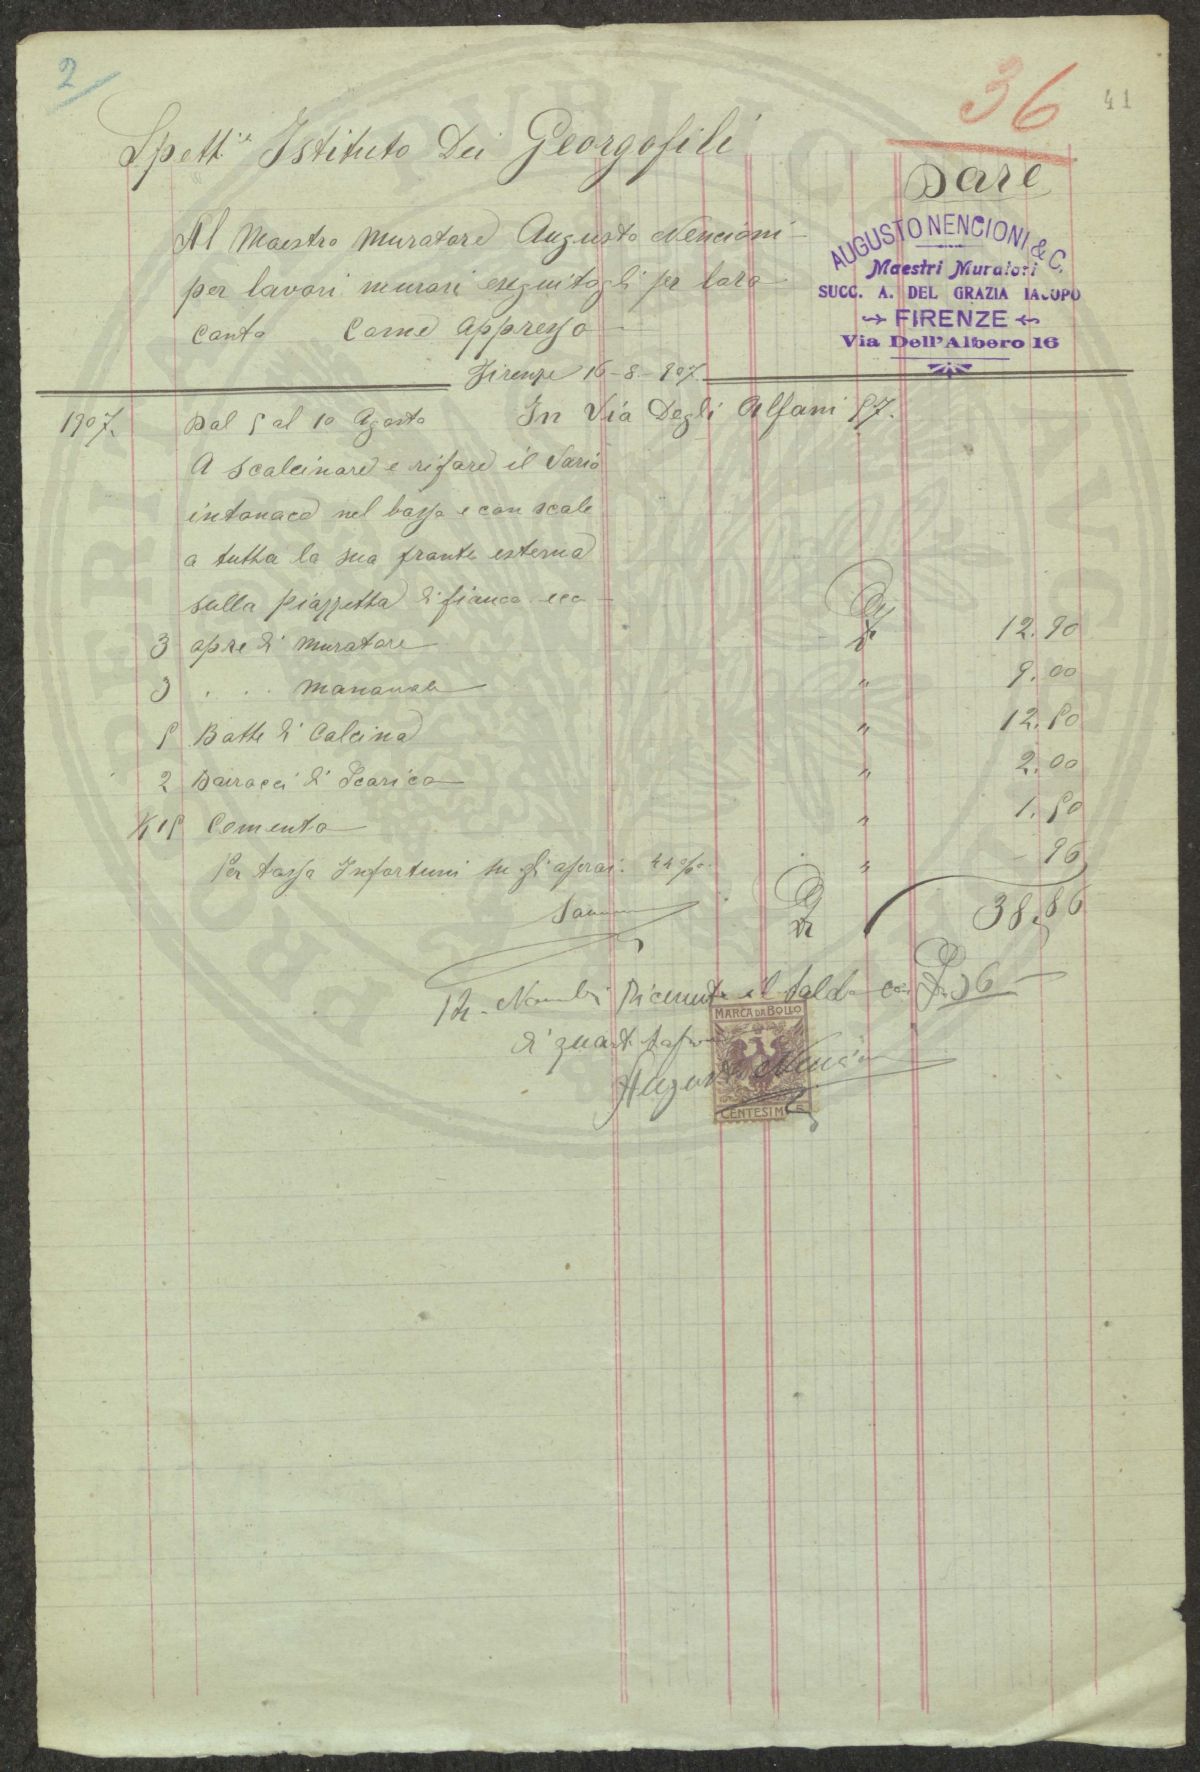 2
36
41
Spett. Istituto Dei Georgofili
Dare
Al Maestro Muratore Augusto Nencioni
per lavori murari eseguitogli per loro
conto Come Appresso
AUGUSTO NENCIONI & C.
Maestri Muratori
SUCC. A. DEL GRAZIA IACOPO
FIRENZE
Via Dell'Albero 16
Firenze 16-8-907.
1907. Dal 5 al 10 Agosto In Via Degli Alfani 57.
A Scalcinare e rifare il Vario
intonaco nel basso e con scale
a tutta la sua fronte esterna
sulla Piazzetta di fianco ecc
3 opre di Muratore £ 12.90
3 . . . Manovale " 9.00
5 Botte di Calcina " 12.50
2 Barocci di Scarico " 2.00
K 15 Comento " 1.50
Per tassa Infortuni su gli operai. 44 ‰ " - 96
Somma £ 38.86
Ricevuto il saldo £ 36
di
MARCA DA BOLLO
Augusto Nencioni
CENTESIMI 5